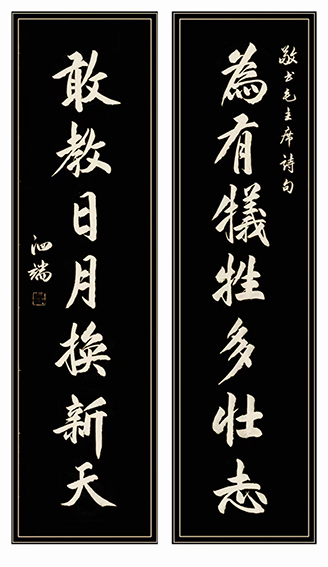 敬书毛主席詩句
為有犧牲多壮志
敢教日月换新天
泗端